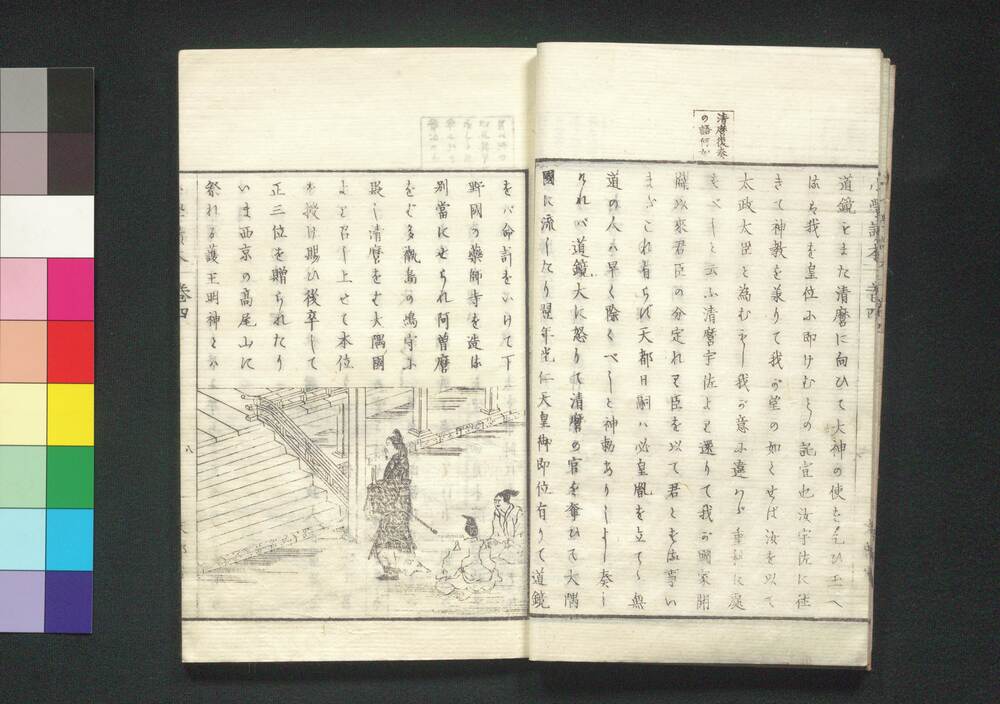 清麿復奏
の語何か
道鏡をまた清麿に向ひて大神の使を乞ひ玉へ
るは我を皇位に即けむとの託宣也汝宇佐に往
きて神教を承りて我が望の如くせば汝を以て
太政大臣と為むもし我が意に違はゞ重刑に處
すべしと云ふ清麿宇佐より還りて我が國家開
闢以來君臣の分定れり臣を以て君とする事い
まだこれ有らず天都日嗣ハ必皇胤を立てよ無
道の人ハ早く除くべしと神勅ありしよし奏し
けれバ道鏡大に怒りて清麿の官を奪ひて大隅
國に流したり翌年光仁天皇御即位有りて道鏡
をバ命計をいけて下
野國の藥師寺を造る
別當にせられ阿曾麿
をば多褹島の嶋守に
貶し清麿をば大隅國
より召し上せて本位
を授け賜ひ後卒して
正三位を贈られたり
いま西京の高尾山に
祭れる護王明神とハ
卷四
八